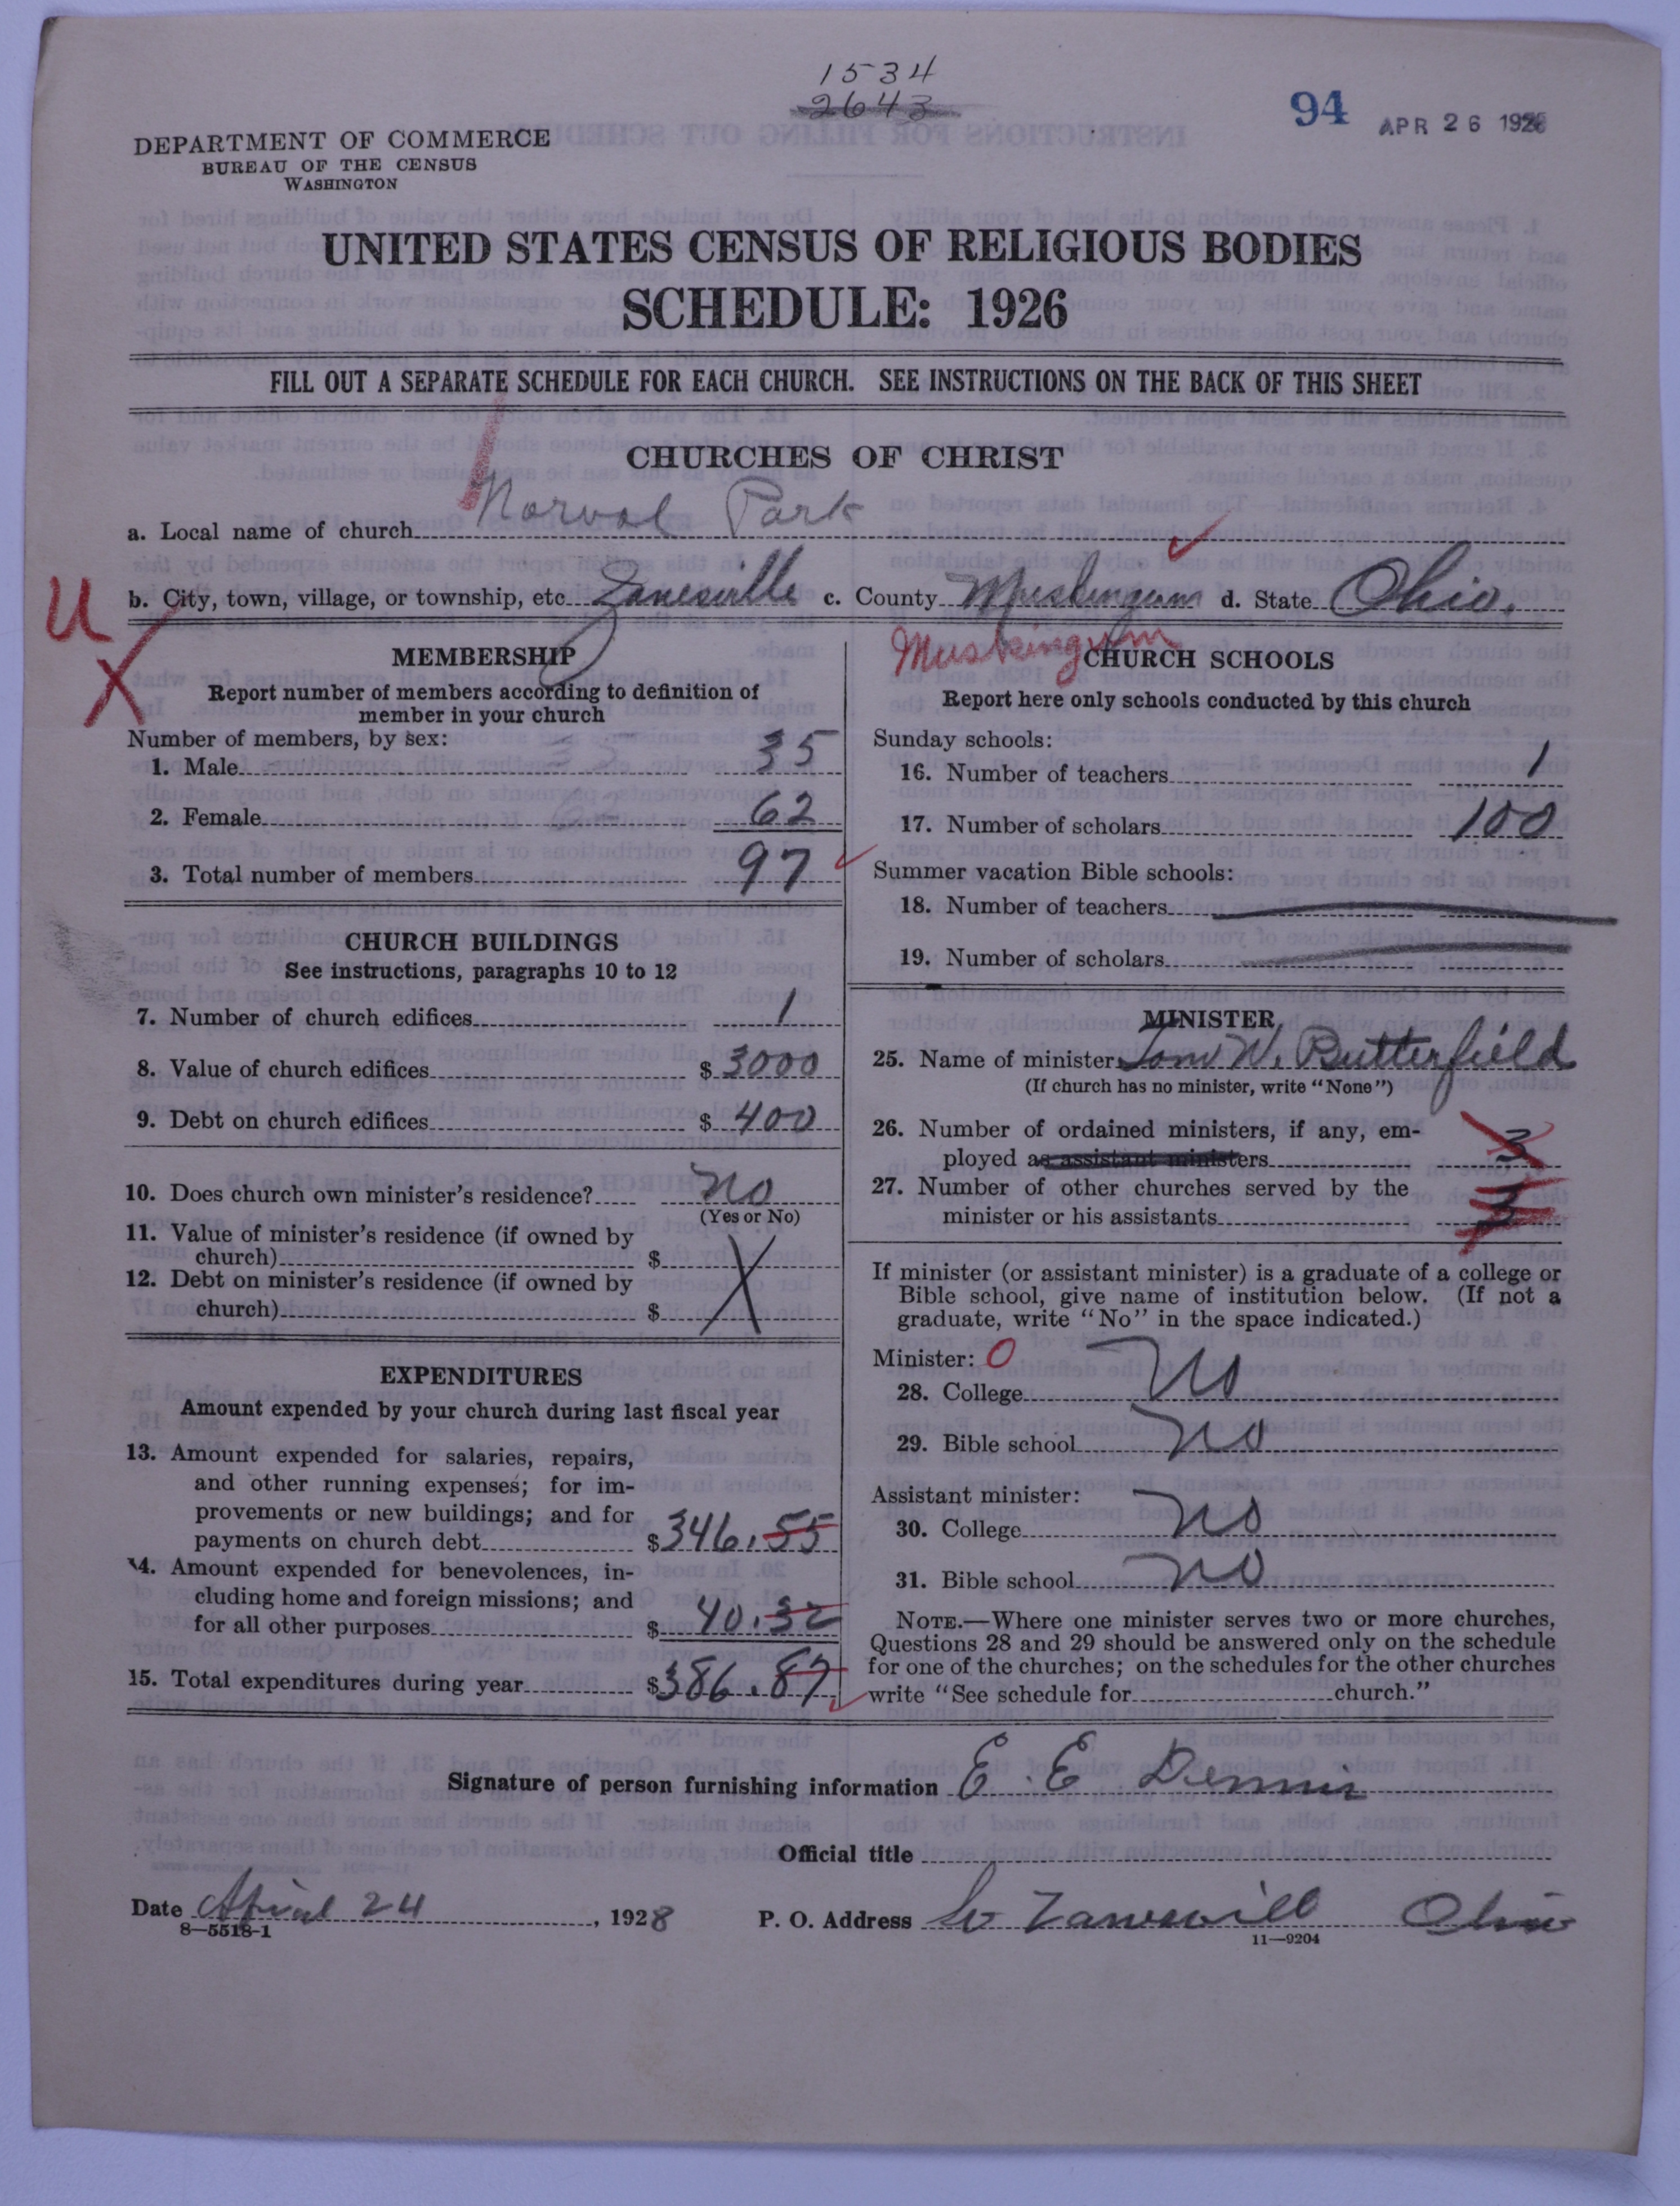 1534
2643
94 APR 26 1928
DEPARTMENT OF COMMERCE
BUREAU OF THE CENSUS
WASHINGTON
UNITED STATES CENSUS OF RELIGIOUS BODIES
SCHEDULE: 1926
FILL OUT A SEPARATE SCHEDULE FOR EACH CHURCH. SEE INSTRUCTIONS ON THE BACK OF THIS SHEET
CHURCHES OF CHRIST
a. Local name of church Norval Park
U b. City, town, village, or township, etc. Zanesville c. County Muskingum d. State Ohio.
X
MEMBERSHIP
Report number of members according to definition of
member in your church
Number of members, by sex:
1. Male 35
2. Female 62
3. Total number of members 97
CHURCH BUILDINGS
See instructions, paragraphs 10 to 12
7. Number of church edifices 1
8. Value of church edifices $ 3000
9. Debt on church edifices $ 400
10. Does church own minister's residence? No
(Yes or No)
11. Value of minister's residence (if owned by
church) $
12. Debt on minister's residence (if owned by
church) $
EXPENDITURES
Amount expended by your church during last fiscal year
13. Amount expended for salaries, repairs,
and other running expenses; for im-
provements or new buildings; and for
payments on church debt $ 346.55
14. Amount expended for benevolences, in-
cluding home and foreign missions; and
for all other purposes $ 40.32
15. Total expenditures during year $ 386.87
Muskingum
CHURCH SCHOOLS
Report here only schools conducted by this church
Sunday schools:
16. Number of teachers 1
17. Number of scholars 100
Summer vacation Bible schools:
18. Number of teachers
19. Number of scholars
MINISTER
25. Name of minister Tom W. Butterfield
(If church has no minister, write "None")
26. Number of ordained ministers, if any, em-
ployed as assistant ministers 3
27. Number of other churches served by the
minister or his assistants 3
If minister (or assistant minister) is a graduate of a college or
Bible school, give name of institution below. (If not a
graduate, write "No" in the space indicated.)
Minister: 0
28. College No
29. Bible school No
Assistant minister:
30. College No
31. Bible school No
NOTE.—Where one minister serves two or more churches,
Questions 28 and 29 should be answered only on the schedule
for one of the churches; on the schedules for the other churches
write "See schedule for church."
Signature of person furnishing information E. E Dennis
Official title
Date April 24, 1928 P. O. Address Zanesvill Ohio
8—5518-1
11—9204